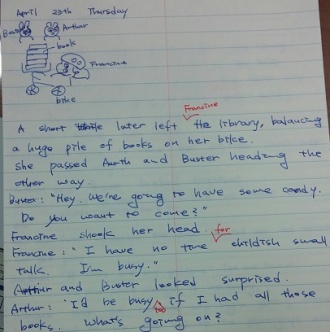 April 23th Thursday
Buster Arthur
book
Francine
bike
Francine
A short later left the library, balancing
a huge pile of books on her bike.
she passed Aurth and Buster heading the
other way.
Buster: "Hey. We're going to have some candy.
Do you want to come?"
Francine shook her head.
for
Francine: "I have no time childish small
talk. I'm busy."
Arthur and Buster looked surprised.
Arthur: "I'd be busy too if I had all those
books. What's going on?